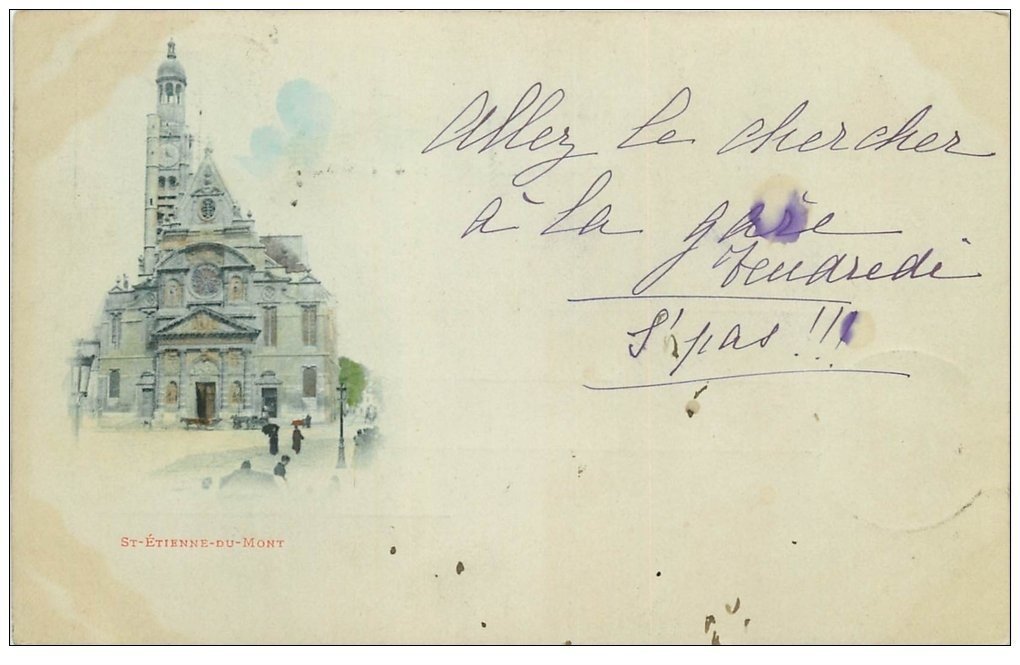 Allez le chercher
à la gare
Vendredi
S' pas !!!
ST-ÉTIENNE-DU-MONT